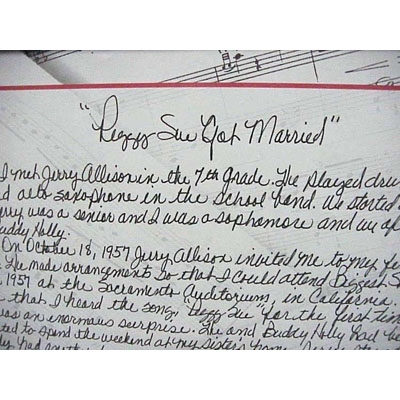 "Peggy Sue Got Married"
I met Jerry Allison in the 7th Grade. He played dru
d alto saxophone in the school band. We started
rry was a senior and I was a sophomore and we of
uddy Holly.
On October 18, 1957 Jerry Allison invited me to my fi
. He made arrangements so that I could attend Biggest S
, 1957 at the Sacramento Auditorium, in California.
that I heard the song, "Peggy Sue" for the first tim
as an enormous surprise. He and Buddy Holly had be
ted to spend the weekend at my sister's home